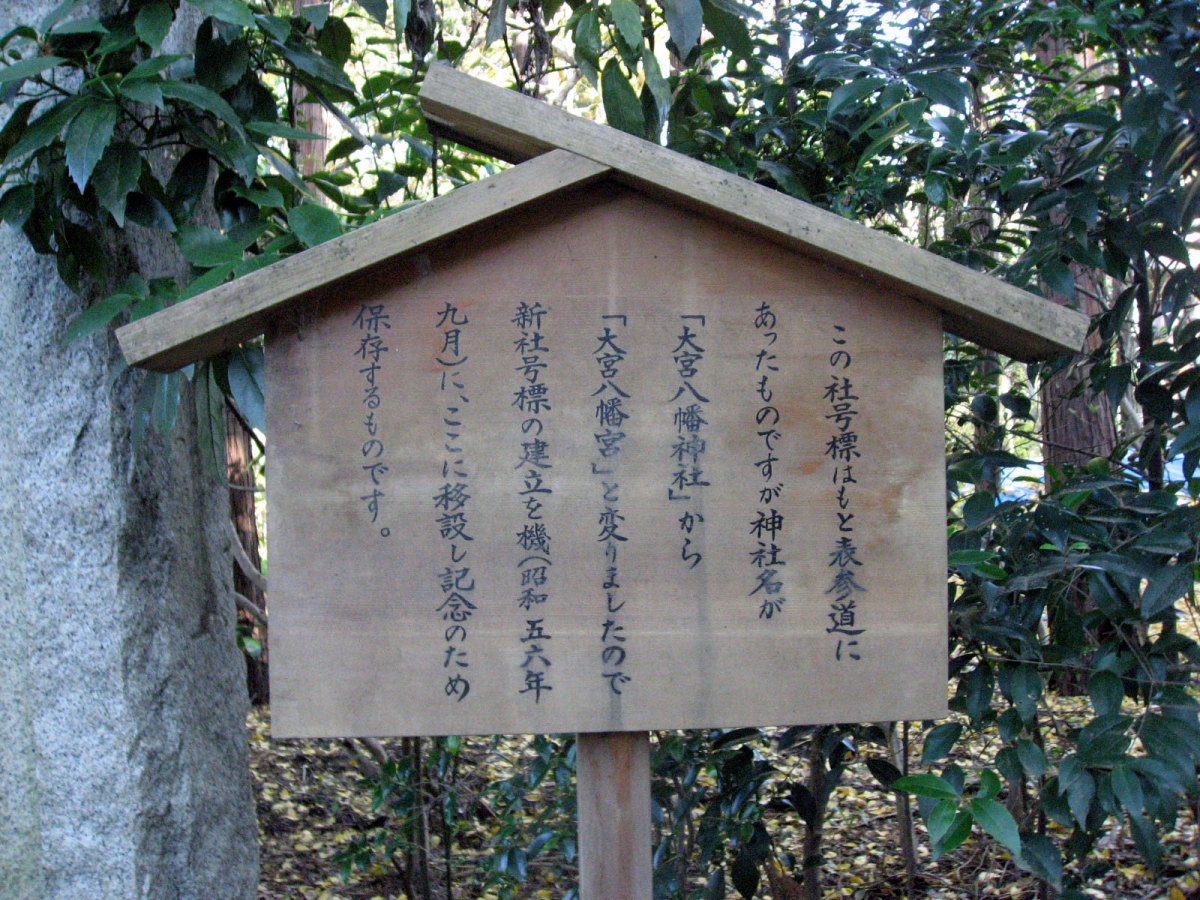 この社号標はもと表参道に
あったものですが神社名が
「大宮八幡神社」から
「大宮八幡宮」と変りましたので
新社号標の建立を機(昭和五六年
九月)に、ここに移設し記念のため
保存するものです。